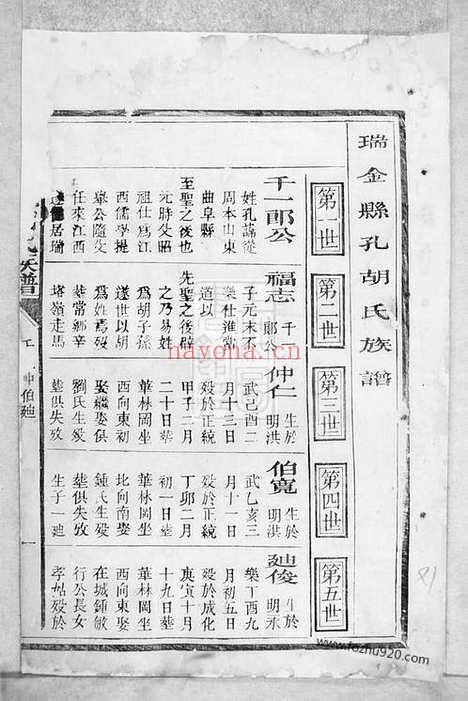 瑞金縣孔胡氏族譜
第一世
第二世
第三世
第四世
第五世
千一郎公
姓孔諱從
周本山東
曲阜縣
至聖之後也
元時父昭
祖仕爲江
西儒學提
舉公隨父
任來江西
居瑞
福志 千一郎公
子元末不
樂仕進常
道以
先聖之後辟
之乃易姓
爲胡子孫
遂世以胡
爲姓焉歿
葬常鄉辛
塔嶺走馬
仲仁 生於明洪
武己酉二
月十三日
歿於正統
甲子二月
二十日葬
華林岡坐
西向東娶
娶繼娶俱
劉氏生歿
葬俱失攷
伯寬 生於明洪
武乙亥三
月十一日
歿於正統
丁卯二月
初一日葬
華林岡坐
比向南娶
鍾氏生歿
葬俱失攷
生子一廸
廸俊 生於明永
樂丁酉九
月初五日
歿於成化
庚寅十月
十九日葬
華林岡坐
西向東娶
在城鍾敏
行公長女
孝姑歿於
族譜
仲伯廸
一
hayona.com
www.fozhu920.com